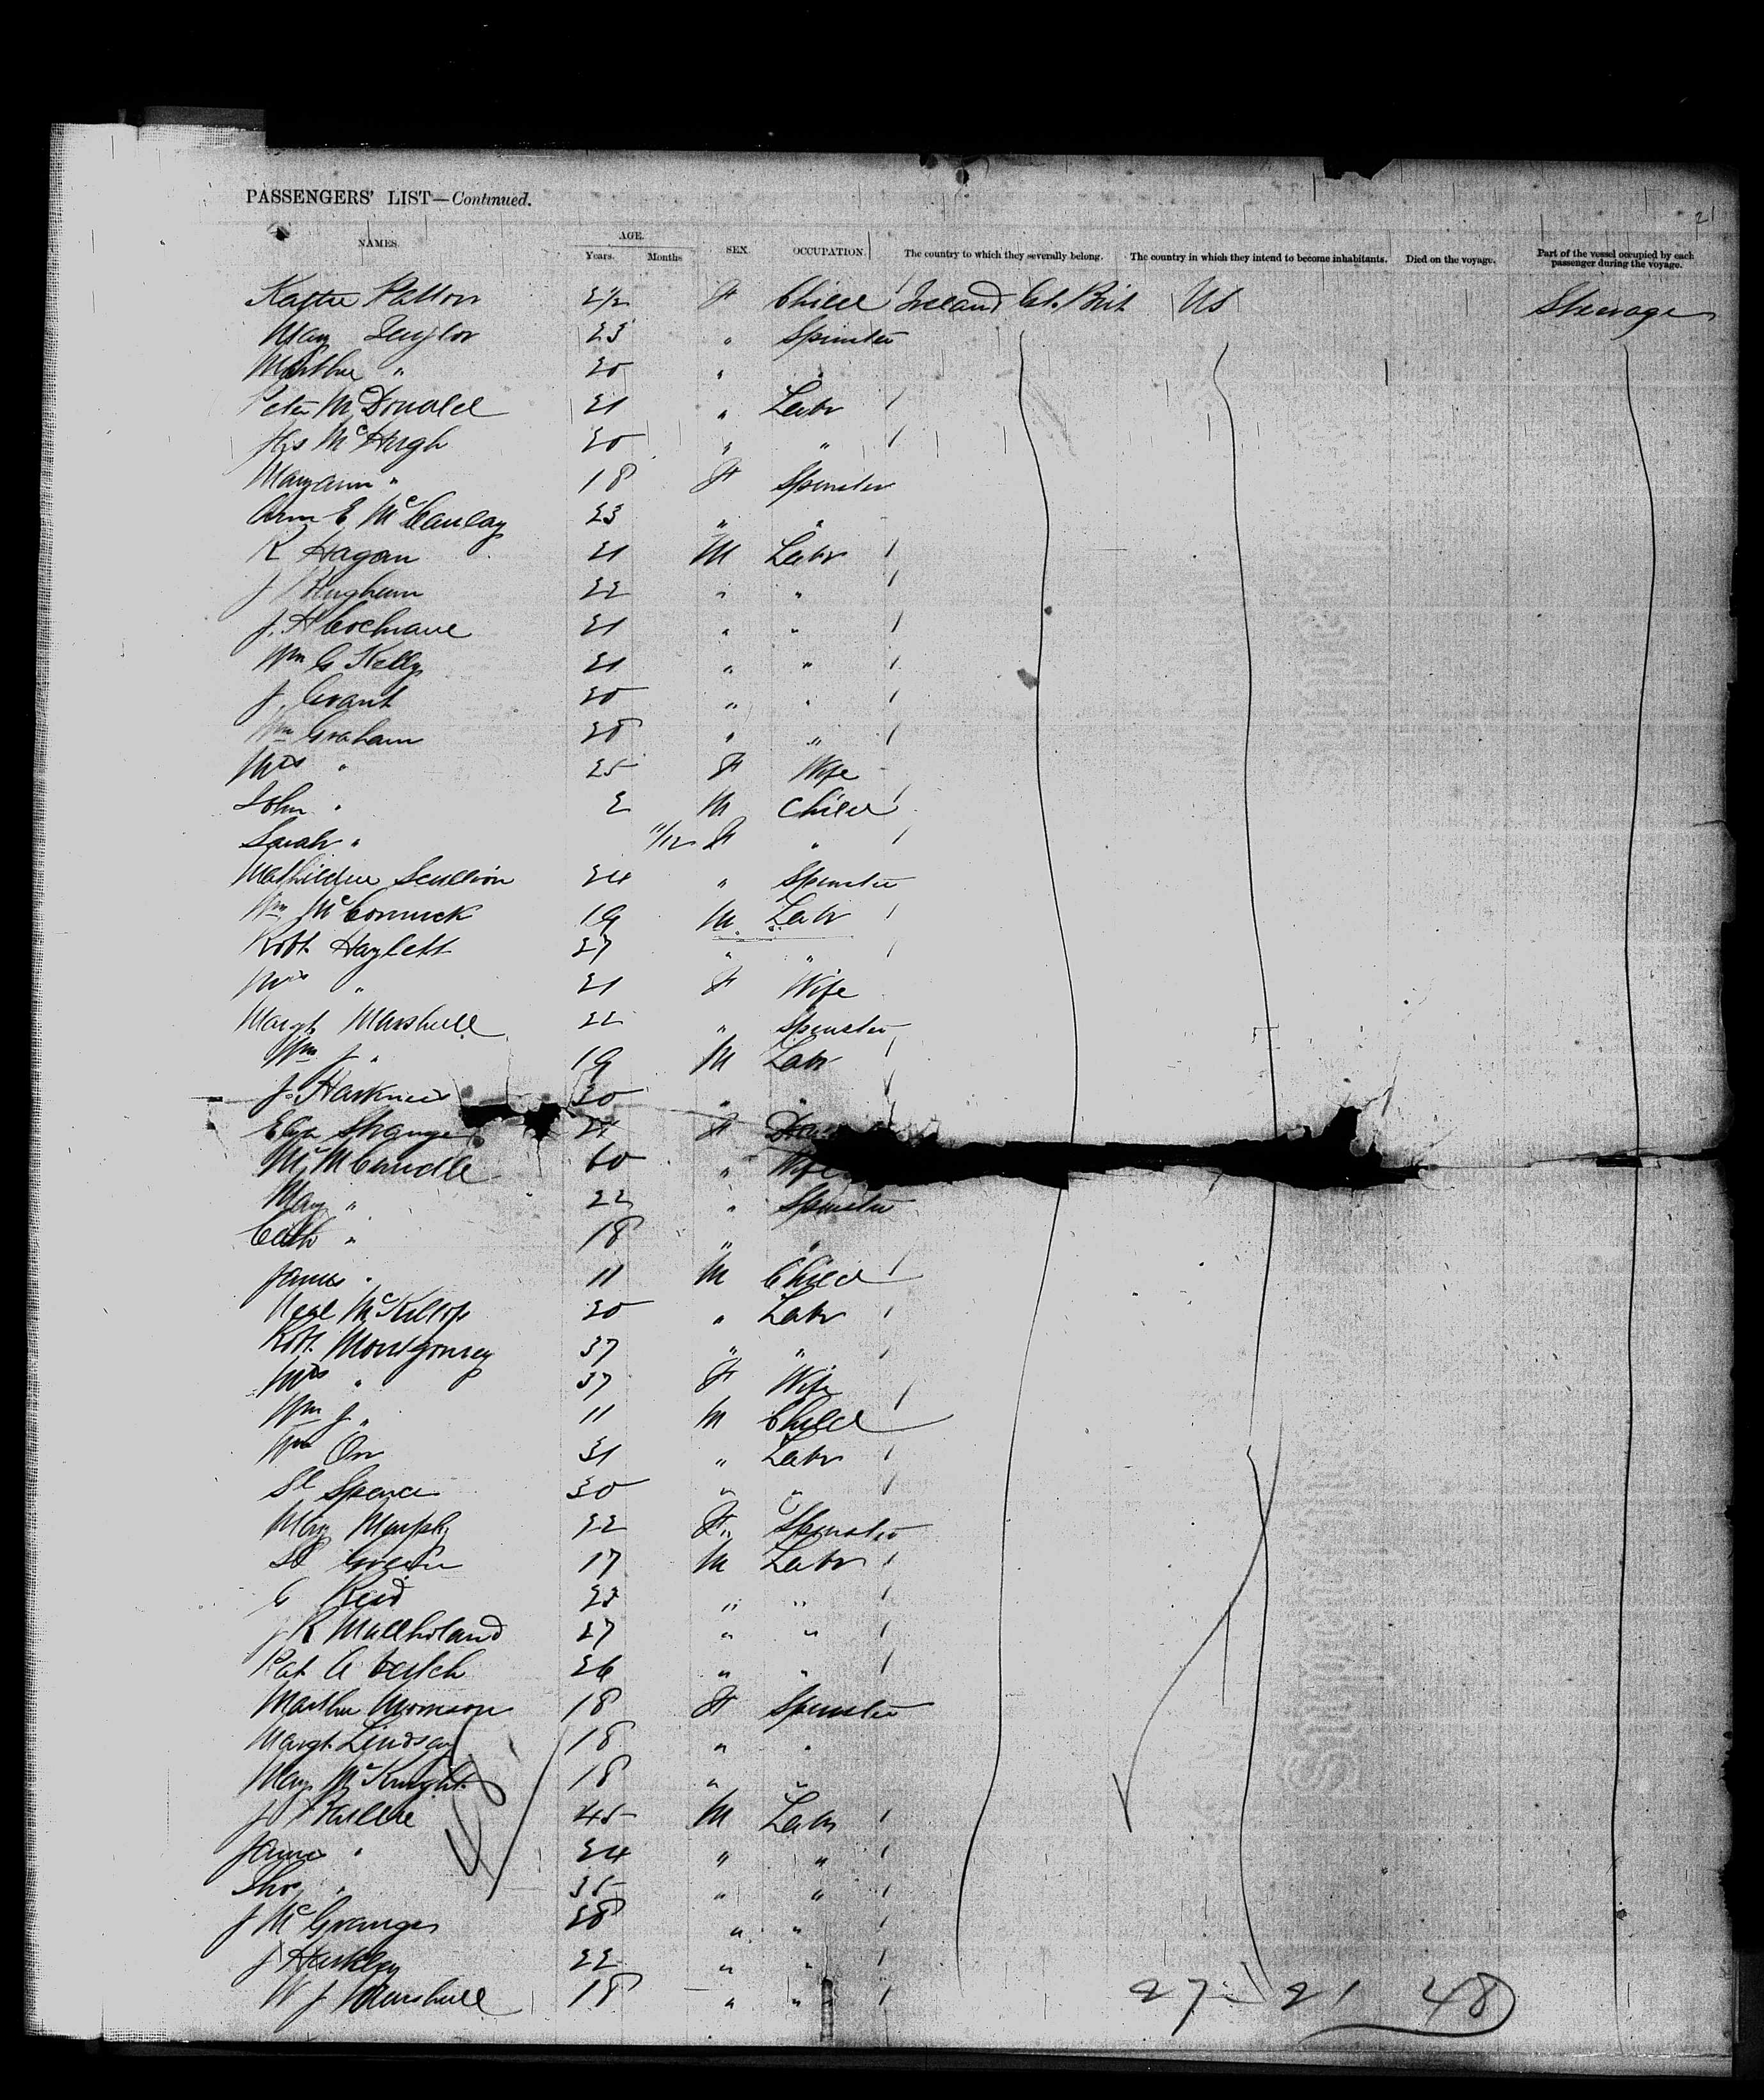 21
PASSENGERS' LIST—Continued.
NAMES. AGE. Years. Months SEX. OCCUPATION. The country to which they severally belong. The country in which they intend to become inhabitants. Died on the voyage. Part of the vessel occupied by each passenger during the voyage.
Patton 2½ F Child Ireland Gt. Brit US Steerage
Mary Taylor 23 " Spinster
Martha " 20 " "
Peter McDonald 21 " Labr
McHugh 20 " "
Maryann " 18 F Spinster
Ann E McCaulay 23 " "
R Hagan 21 M Labr
J 22 " "
J. H Cochrane 21 " "
Wm G Kelly 21 " "
J. Grant 20 " "
Wm Graham 28 " "
Mrs " 25 F Wife
John " 2 M Child
Sarah " 11/12 F "
Scullion 24 " Spinster
Wm McCormick 19 M Labr
Robt Hazlett 27 " "
Mrs " 21 F Wife
Margt Marshall 22 " Spinster
Wm J " 19 M Labr
J. Harkness 30 " "
Eliza Strange 21 F
60 " Wife
Mary " 22 " Spinster
Cath " 18 " "
James " 11 M Child
Neal McKillop 20 " Labr
Robt. Montgomery 37 " "
Mrs " 37 F Wife
Wm J " 11 M Child
Wm Orr 31 " Labr
Sl Spence 30 " "
Mary Murphy 22 F " Spinster
Green 17 M Labr
G Reid 23 " "
J R Mullholand 27 " "
Pat 26 " "
Martha 18 F Spinster
Margt Lindsay 18 " "
Mary McKnight 18 " "
J Baillie 45 M Labr
James " 24 " "
Thos " 35 " "
J McGranger 28 " "
J Harkley 22 " "
W J Marshall 18 " "
48
27 21 48